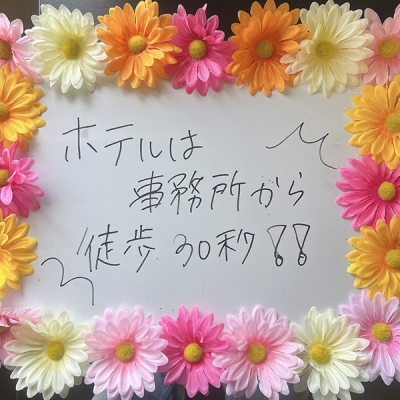 ホテルは
事務所から
徒歩30秒!!